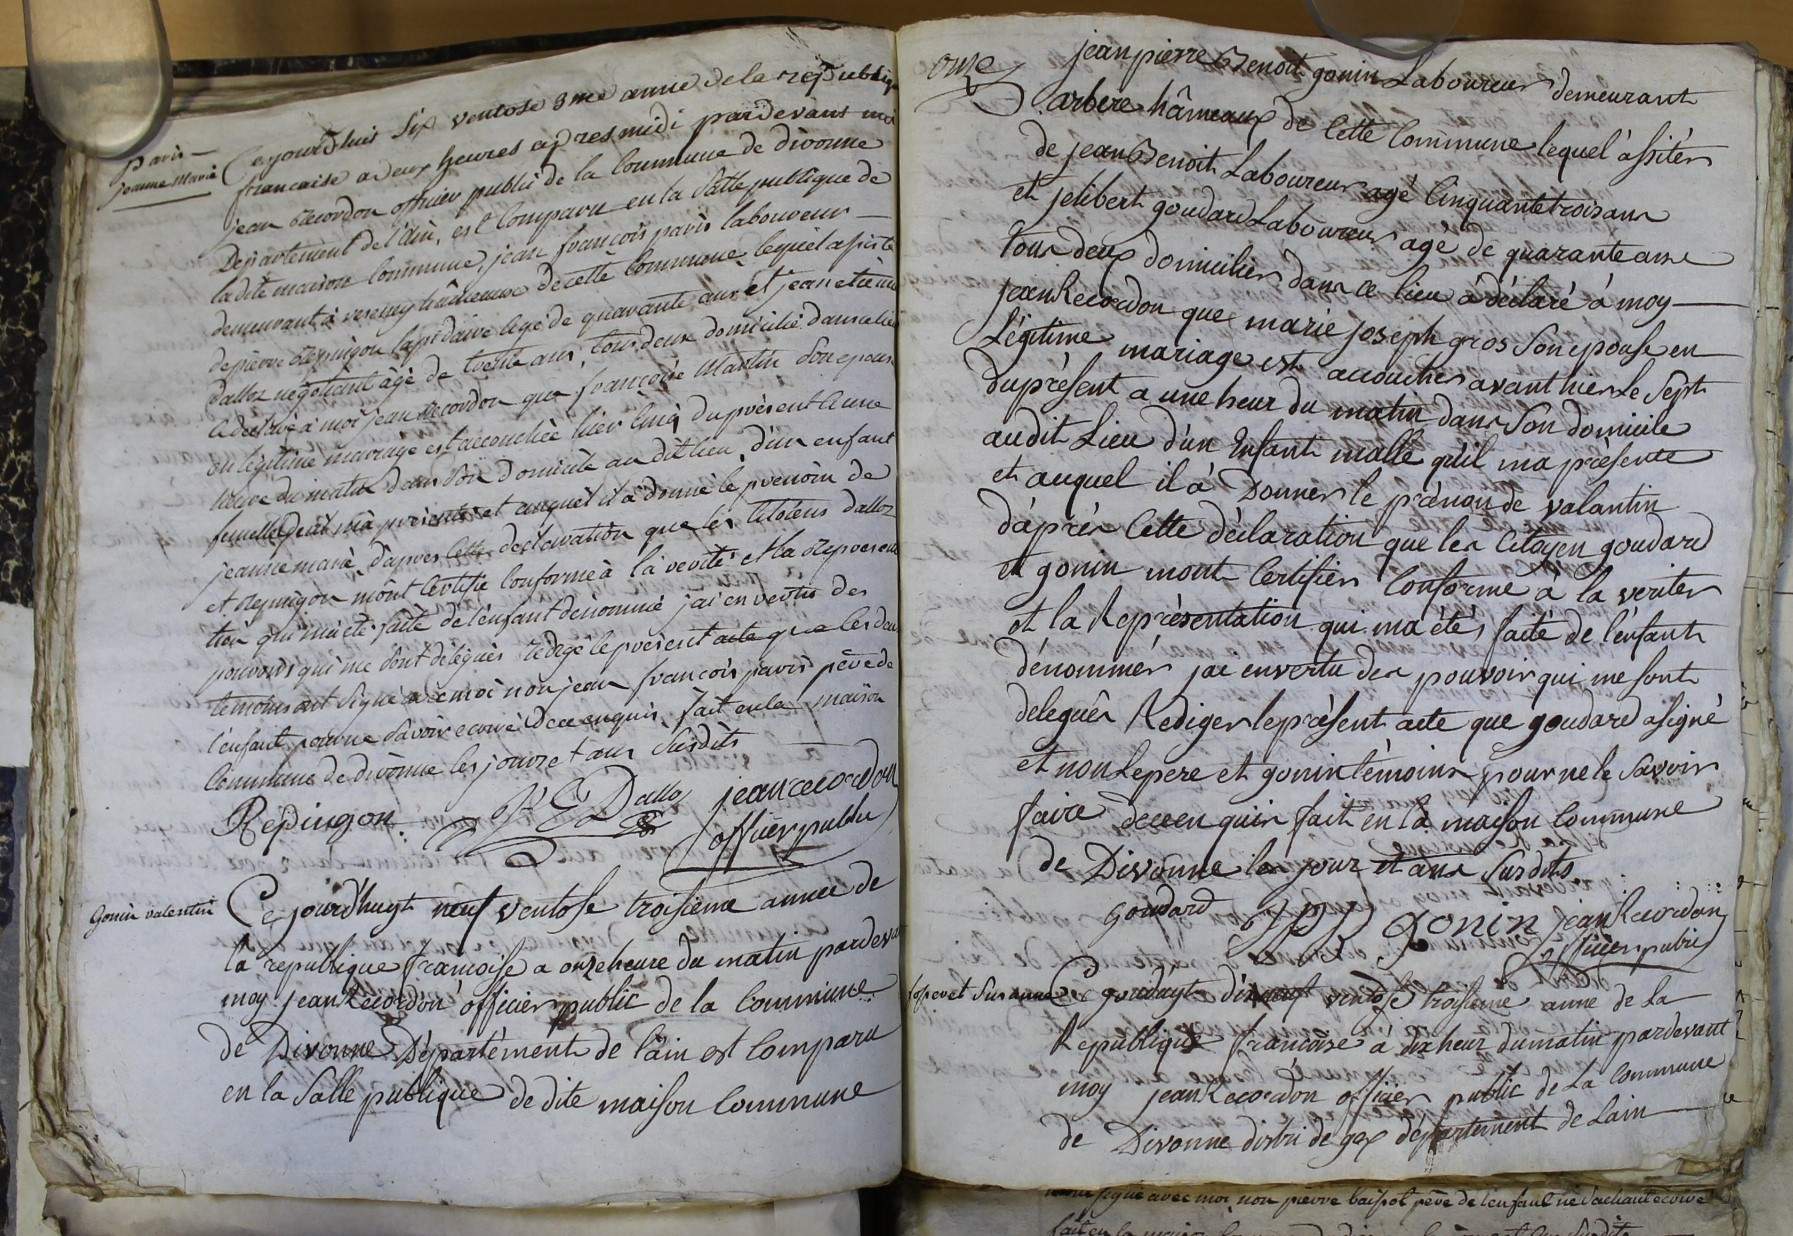 Paris
jeanne Marie
Cejourdhui Six ventose 3me anné de la republique
francaise a deux heures apres midi pardevant moi
jean Recordon officier public de la Commune de divonne
Departement de l'Ain, est Comparu en la Salle publique de
la dite maison Commune, jean francois paris laboureur
demeurant a veseney hameaux de cette Commune lequel assisté
de pierre Repingon lapidaire agé de quarante ans et jean etienne
dalloz négotiant âgé de trente ans, tous deux domicilié dans ce lieu
a declaré à moi jean Recordon que francoise Martin Son epouse
en légitime mariage est accouchée hier Cinq du présent a une
heure du matin dans Son domicile au dit lieu, d'un enfant
femelle qu'il m'a présenté et auquel il a donné le prenom de
jeanne marie, d'apres Cette declaration que les Citoiens dalloz
et Repingon m'ont Certifié Conforme à la verité et la Represen
tion qui m'a été faite de l'enfant denommé j'ai en vertu des
pouvoirs qui me sont délégués redigé le présent acte que les deux
temoins ont Signé avec moi non jean francois paris père de
l'enfant pour ne Savoir ecrire de ce enquis, fait en la maison
Commune de divonne les jour et an Susdits
Repingon J. E Dallo jean recordon
officier public
Gonin valentin
Ce jourd'huyt neuf ventose troisieme année de
la republique francoise a onze heure du matin pardeva
moy jean Recordon officier public de la Commune
de Divonne Département de l'ain est Comparu
en la Salle publique de dite maison Commune
onze
jean pierre Benoit gonin Laboureur demeurant
arbere hâmeaux de Cette Commune lequel assiter
de jean Benoit Laboureur agé Cinquante trois ans
et jelibert goudard Laboureur agé de quarante ans
tous deux domicilier dans ce lieu à déclaré à moy
jean Recordon que marie joseph gros Son epouse en
Légitime mariage est accoucher avant hier le Sept
du présent a une heur du matin dans Son domicile
audit Lieu d'un Enfant malle qu'il ma présente
et auquel il à Donner le prénon de valantin
d'aprés Cette déclaration que les Citoyen goudard
et gonin mont Certifier Conforme à la veriter
et la Représentation qui ma étés faite de l'enfant
dénommér jai en vertu des pouvoir qui me sont
delegués Rediger le présent acte que goudard a signé
et non le pere et gonin témoins pour ne le Savoir
faire de ce enquis fait en la maison Commune
de Divonne les jour et ans Susdits
Goudard JPP Gonin jean Recordon
officier public
Suzanne
Ce jourduyt dixneuf ventose troisieme anne de la
Republique francaise à dix heur du matin pardevant
moy jean Recordon officier public de la Commune
de Divonne distri de gex département de Lain
signé avec moi non pierre baissot père de l'enfant ne Sachant ecrire
fait en la maison